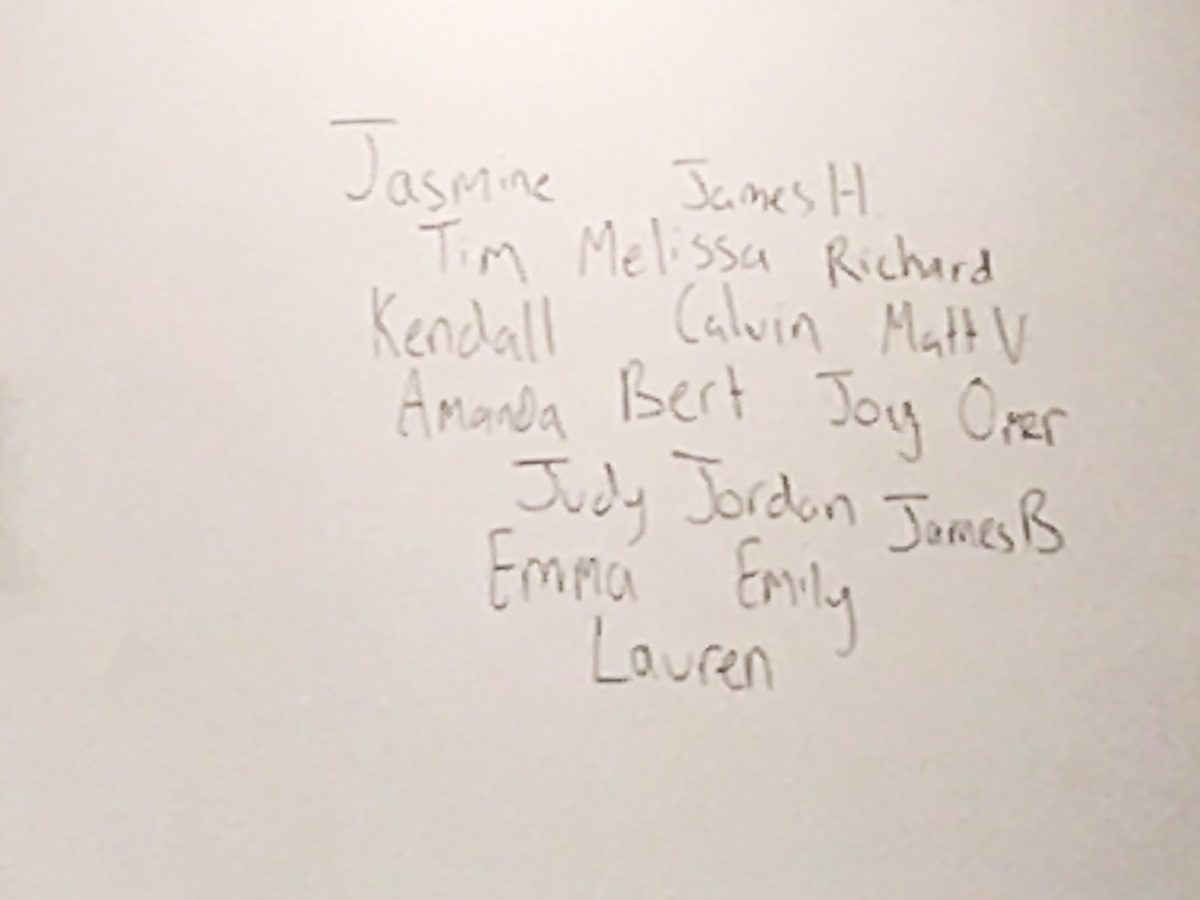 Jasmine James H
Tim Melissa Richard
Kendall Calvin Matt V
Amanda Bert Joy Omer
Judy Jordan James B
Emma Emily
Lauren